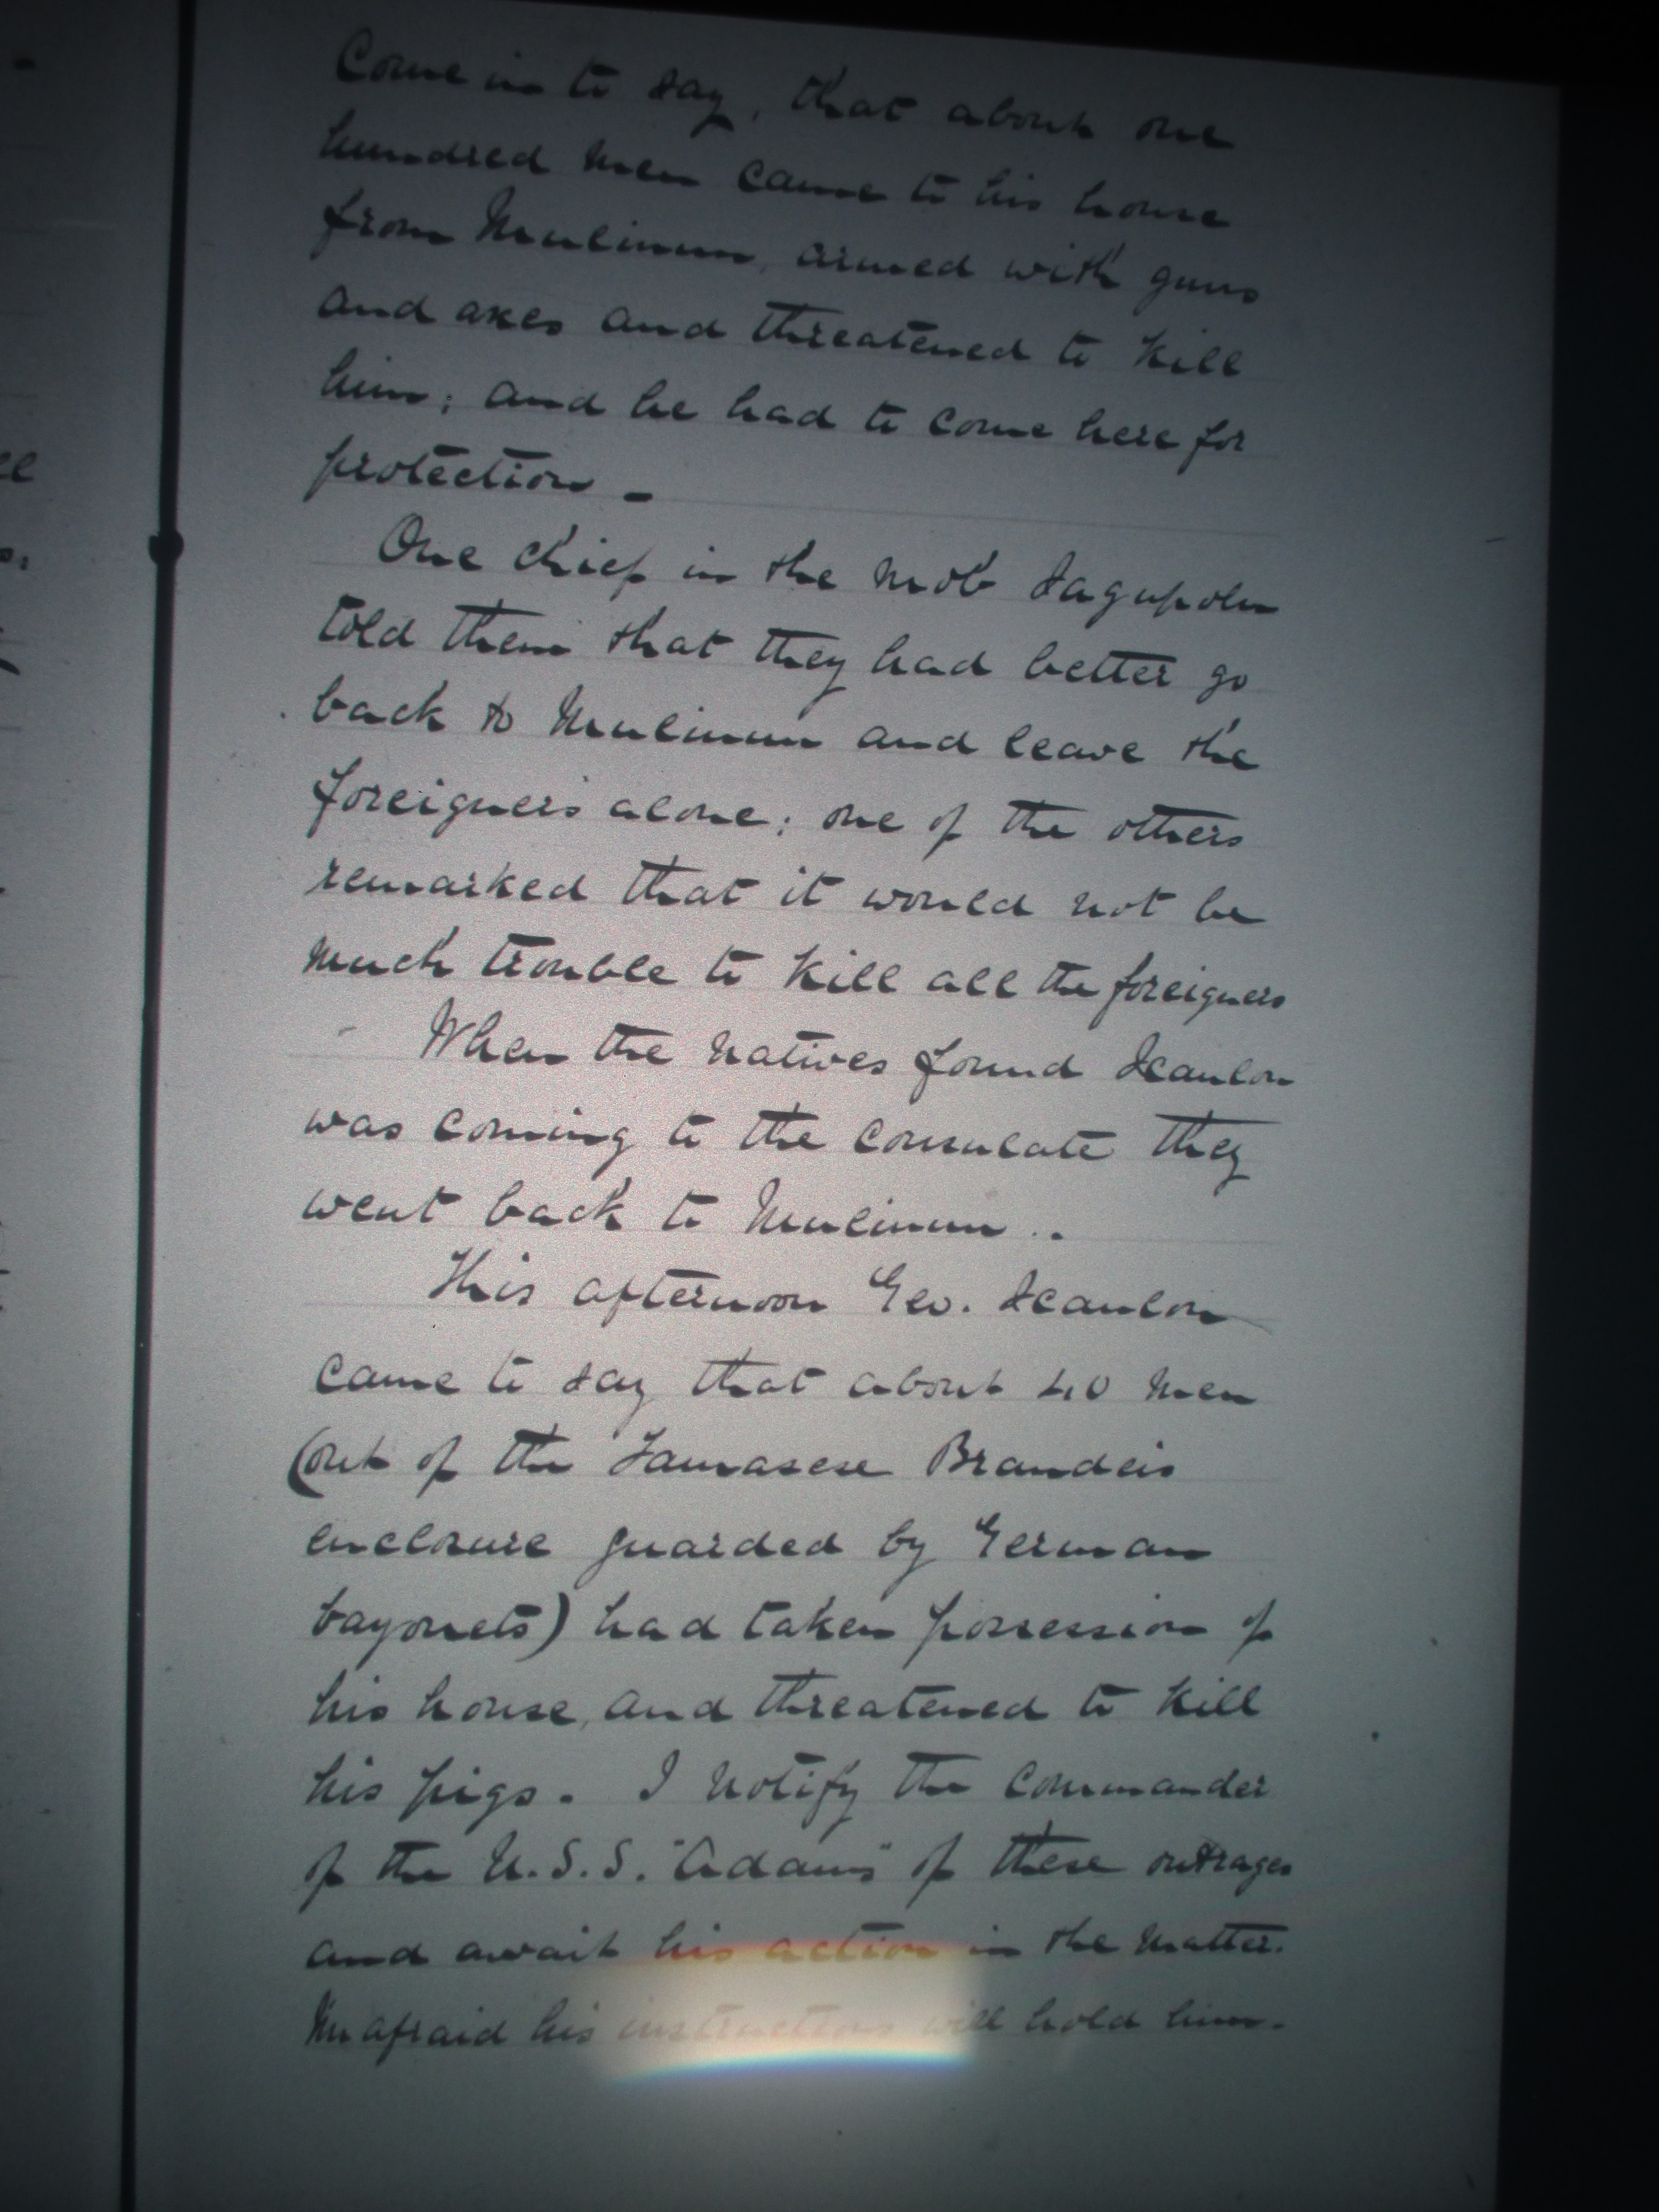 Come in to say, that about one
hundred men came to his house
from Mulinuu, armed with guns
and axes and threatened to kill
him; and he had to come here for
protection –
One chief in the mob Sagapolu
told them that they had better go
back to Mulinuu and leave the
foreigners alone; one of the others
remarked that it would not be
much trouble to kill all the foreigners
When the natives found Scanlon
was coming to the consulate they
went back to Mulinuu ..
This afternoon Geo. Scanlon
came to say that about 40 men
(out of the Tamasese Brandeis
enclosure guarded by German
bayonets) had taken possession of
his house, and threatened to kill
his pigs. I notify the Commander
of the U.S.S. "Adams" of these outrages
and await his action in the matter.
I'm afraid his instructions will hold him.